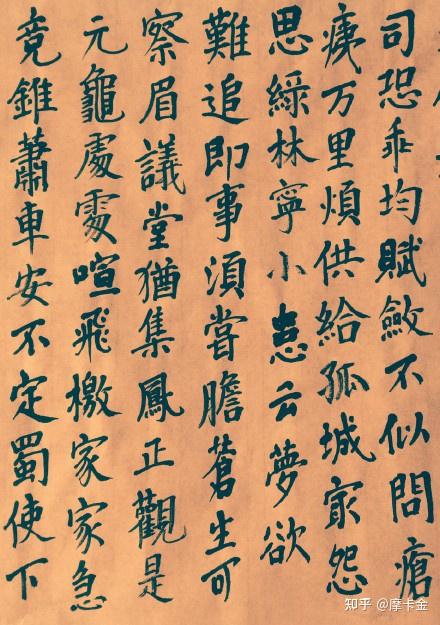 司恐乖均賦斂不似問瘡
痍万里煩供給孤城冣怨
思綠林寧小患云夢欲
難追即事須嘗膽蒼生可
察眉議堂猶集鳳正觀是
元龜處處喧飛檄家家急
竟錐蕭車安不定蜀使下
知乎 @摩卡金